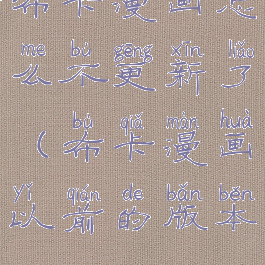 布卡漫画怎
me bú gēng xīn liǎo
么不更新了
bù qiǎ màn huà
（布卡漫画
yǐ qián de bǎn běn
以前的版本